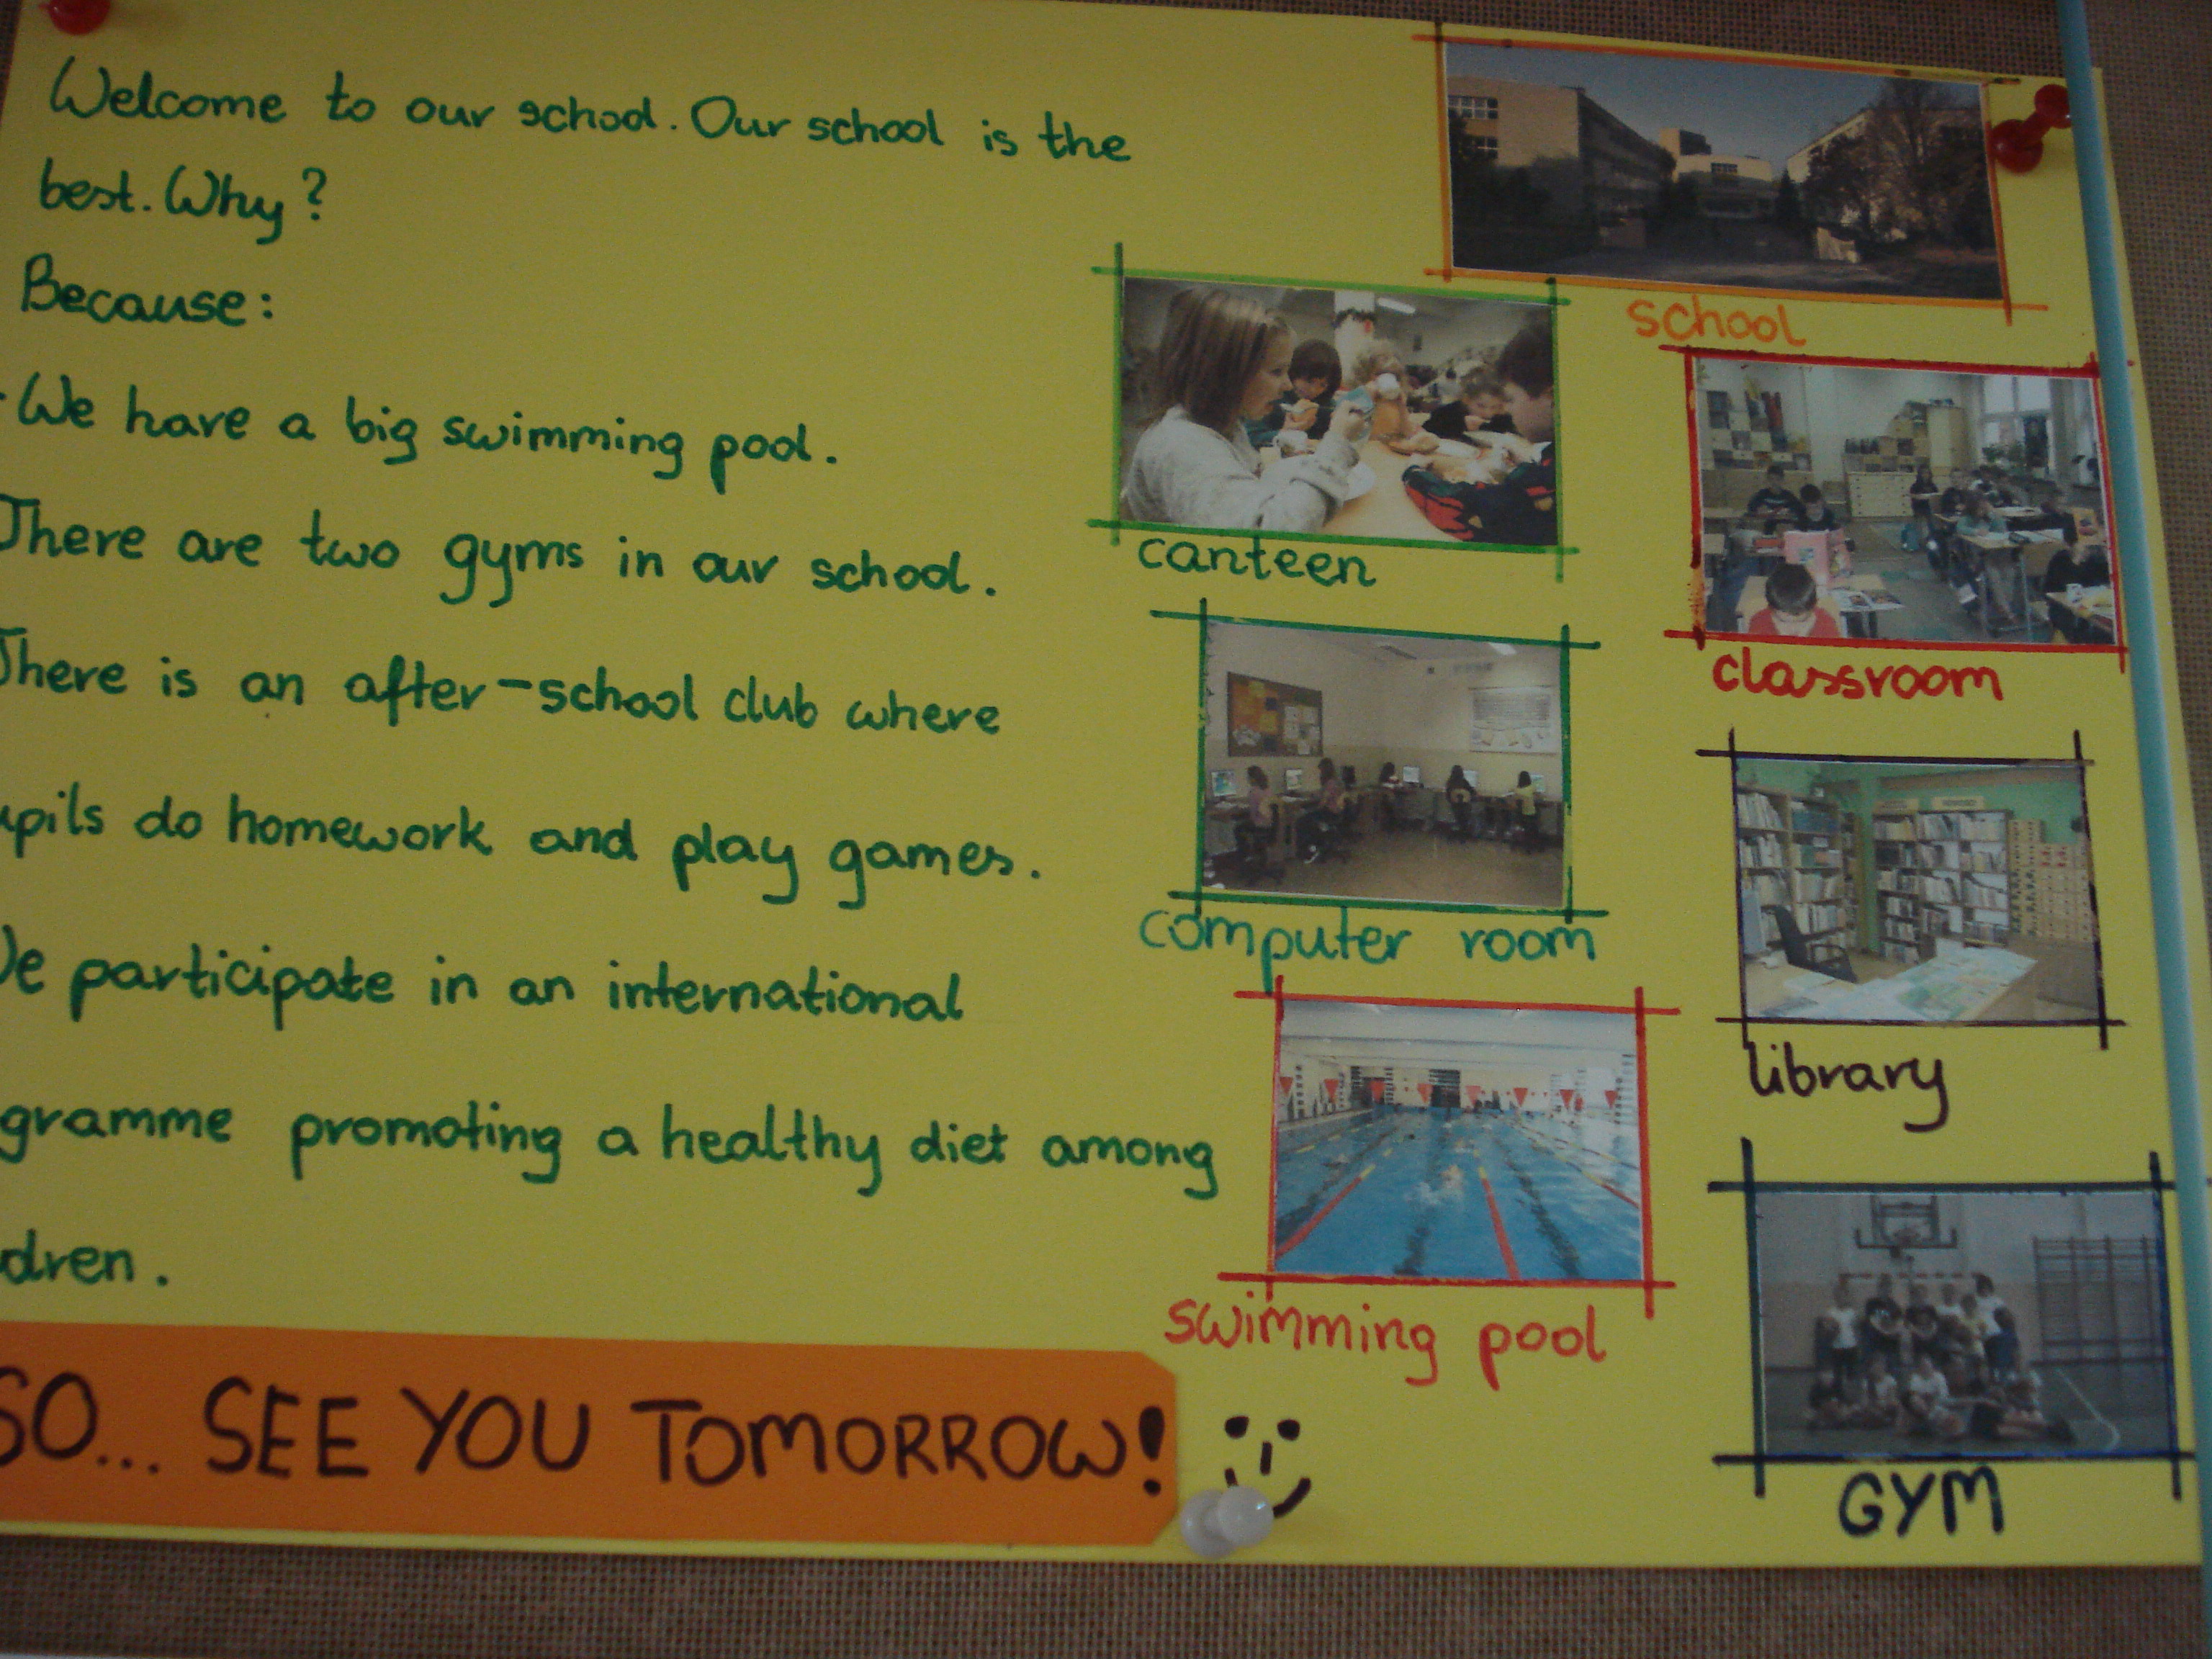 Welcome to our school. Our school is the
best. Why?
Because:
We have a big swimming pool.
There are two gyms in our school.
There is an after-school club where
upils do homework and play games.
We participate in an international
gramme promoting a healthy diet among
dren.
SO... SEE YOU TOMORROW!
school
canteen
classroom
computer room
library
swimming pool
GYM